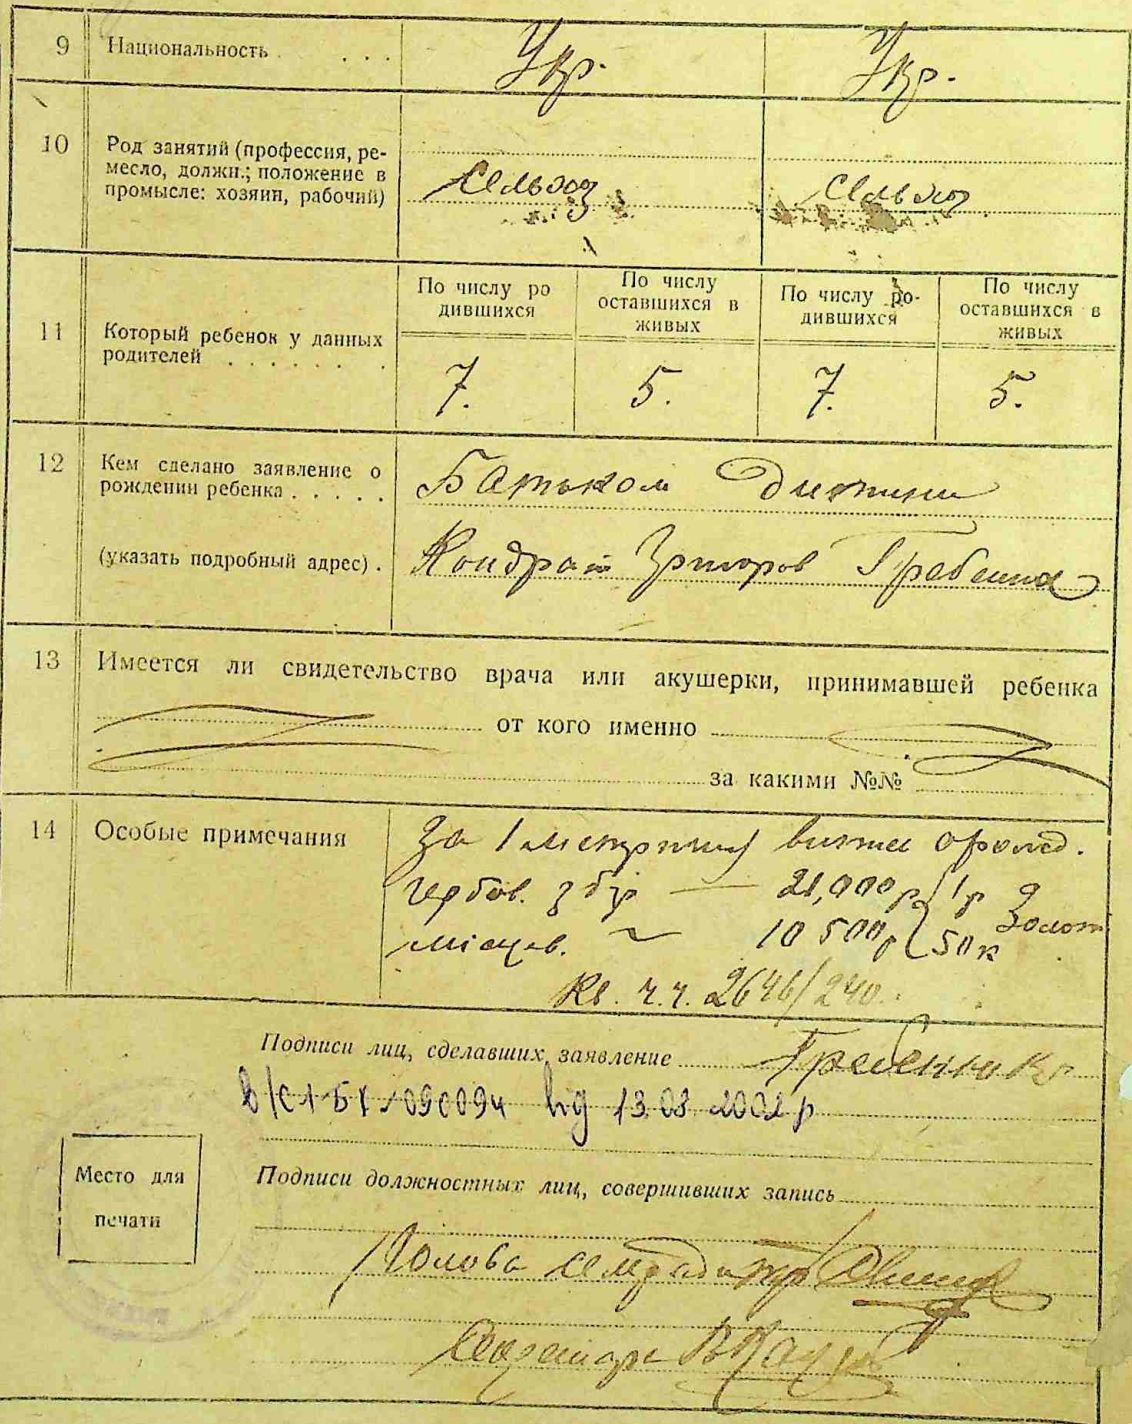 9 Национальность . . . . Укр. Укр.
10 Род занятий (профессия, ре-
месло, должн.; положение в
промысле: хозяин, рабочий) Сельхоз Сельхоз
По числу ро
дившихся
По числу
оставшихся в
живых
По числу ро-
дившихся
По числу
оставшихся в
живых
11 Который ребенок у данных
родителей . . . . . . .
7. 5. 7. 5.
12 Кем сделано заявление о
рождении ребенка . . . . . Батьком дитини
(указать подробный адрес) . Кондрат Григоров Гребенюк
13 Имеется ли свидетельство врача или акушерки, принимавшей ребенка
от кого именно
за какими №№
14 Особые примечания За метрич витяг
гербов. збір — 21,000 р 1 р
місцев. ~ 10 500 р 50 к Золот
Кв. ч.ч. 2646/240.
Подписи лиц, сделавших заявление Гребенюк
від 13.03.2002 р
Место для
печати
Подписи должностных лиц, совершивших запись
Голова сельради
Секретарь